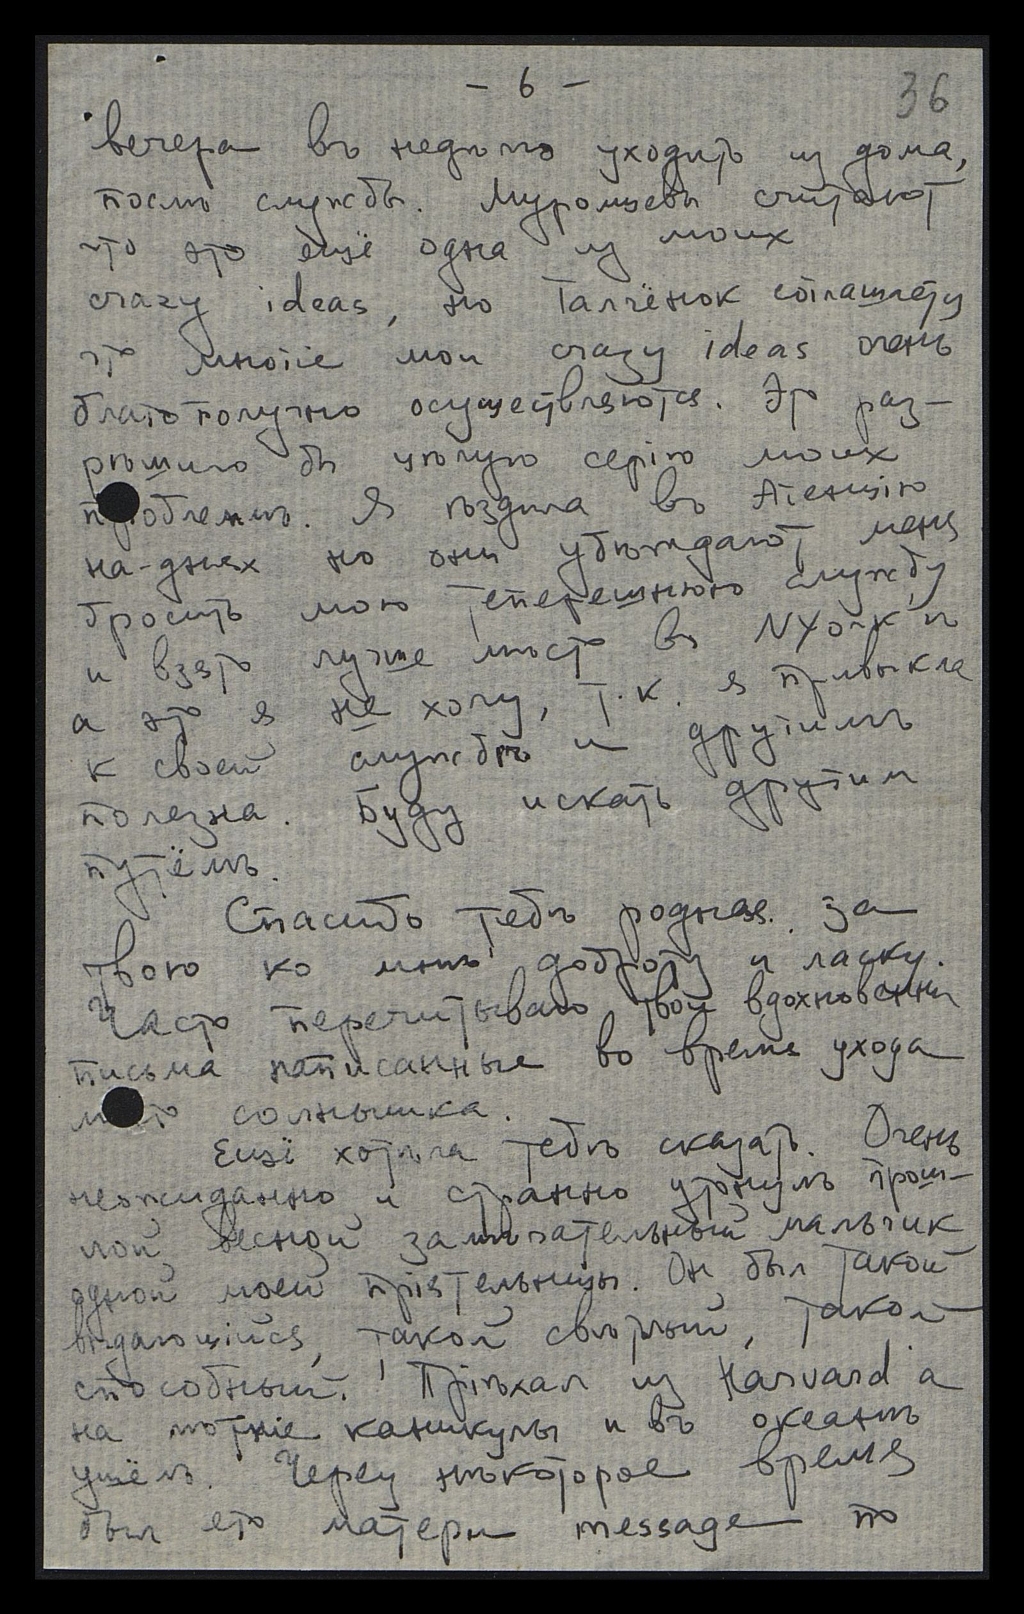 - 6 -
36
вечера въ недѣлю уходить из дома,
послѣ службы. Муромцевы считают
что это ещё одна из моих
crazy ideas, но Талчёнок соглашету
что многіе мои crazy ideas очень
благополучно осуществляются. Это раз-
рѣшило бы цѣлую серію моих
проблемъ. Я ѣздила въ Агенцію
на-днях но они убѣждают меня
бросить мою теперешнюю службу
и взять лучше мѣсто въ NYork'ѣ
а это я не хочу, т.к. я привыкла
к своей службѣ и другимъ
полезна. Буду искать другим
путёмъ.
Спасибо тебѣ родная за
твою ко мнѣ доброту и ласку.
Часто перечитываю твои вдохновенны
письма написанные во время ухода
мого солнышка.
Ещё хотѣла тебѣ сказать. Очень
неожиданно и странно утонулъ прош-
лой весной замѣчательный мальчик
одной моей пріятельницы. Он был такой
выдающійся, такой свѣтлый, такой
способный. Пріѣхал из Harvard'а
на лѣтніе каникулы и въ океанѣ
ушёлъ. Через нѣкоторое время
был его матери message по